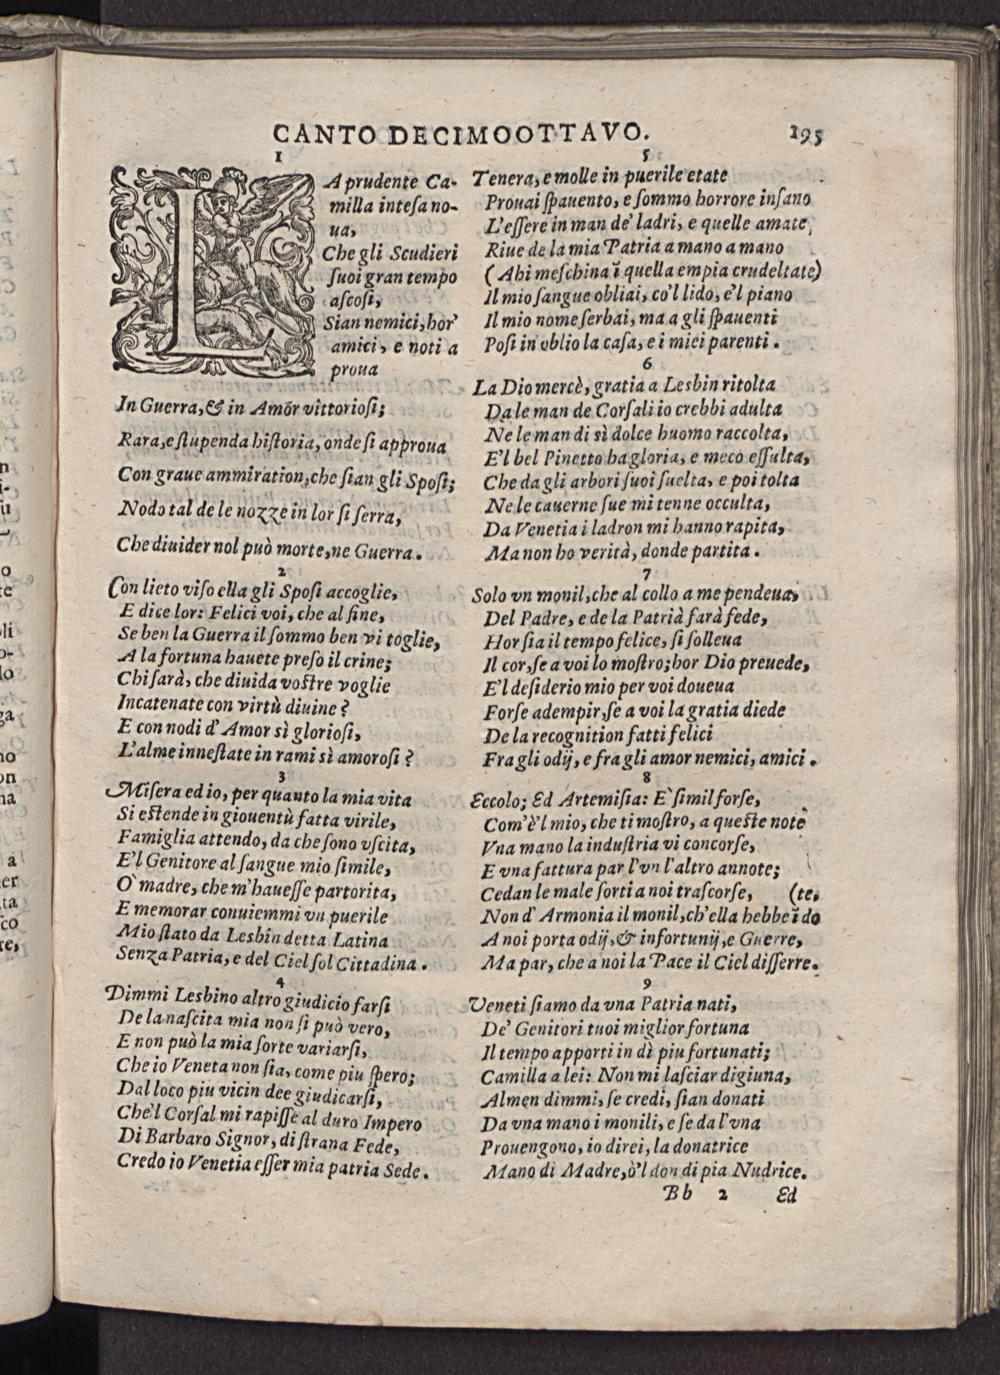 CANTO DECIMOOTTAVO. 195
1
LA prudente Ca-
milla intesa no-
ua,
Che gli Scudieri
suoi gran tempo
ascosi,
Sian nemici, hor'
amici, e noti a
proua
In Guerra, & in Amor vittoriosi;
Rara, e stupenda historia, onde si approua
Con graue ammiration, che sian gli Sposi;
Nodo tal de le nozze in lor si serra,
Che diuider nol può morte, ne Guerra.
2
Con lieto viso ella gli Sposi accoglie,
E dice lor: Felici voi, che al fine,
Se ben la Guerra il sommo ben vi toglie,
A la fortuna hauete preso il crine;
Chi sarà, che diuida vostre voglie
Incatenate con virtù diuine?
E con nodi d'Amor sì gloriosi,
L'alme innestate in rami sì amorosi?
3
Misera ed io, per quanto la mia vita
Si estende in giouentù fatta virile,
Famiglia attendo, da che sono vscita,
E'l Genitore al sangue mio simile,
O` madre, che m'hauesse partorita,
E memorar conuiemmi vn puerile
Mio stato da Lesbin detta Latina
Senza Patria, e del Ciel sol Cittadina.
4
Dimmi Lesbino altro giudicio farsi
De la nascita mia non si può vero,
E non può la mia sorte variarsi,
Che io Veneta non sia, come piu spero;
Dal loco piu vicin dee giudicarsi,
Che'l Corsal mi rapisse al duro Impero
Di Barbaro Signor, di strana Fede,
Credo io Venetia esser mia patria Sede.
5
Tenera, e molle in puerile etate
Prouai spauento, e sommo horrore insano
L'essere in man de' ladri, e quelle amate
Riue de la mia Patria a mano a mano
(Ahi meschina ĩ quella empia crudeltate)
Il mio sangue obliai, co'l lido, e'l piano
Il mio nome serbai, ma a gli spauenti
Posi in oblio la casa, e i miei parenti.
6
La Dio mercè, gratia a Lesbin ritolta
Da le man de Corsali io crebbi adulta
Ne le man di sì dolce huomo raccolta,
E'l bel Pinetto ha gloria, e meco essulta,
Che da gli arbori suoi suelta, e poi tolta
Ne le cauerne sue mi tenne occulta,
Da Venetia i ladron mi hanno rapita,
Ma non ho verità, donde partita.
7
Solo vn monil, che al collo a me pendeua,
Del Padre, e de la Patrià farà fede,
Hor sia il tempo felice, si solleua
Il cor, se a voi lo mostro; hor Dio preuede,
E'l desiderio mio per voi doueua
Forse adempir, se a voi la gratia diede
De la recognition fatti felici
Fra gli odij, e fra gli amor nemici, amici.
8
Eccolo; Ed Artemisia: E` simil forse,
Com'è'l mio, che ti mostro, a queste note
Vna mano la industria vi concorse,
E vna fattura par l'vn l'altro annote;
Cedan le male sorti a noi trascorse, (te,
Non d'Armonia il monil, ch'ella hebbe ĩ do
A noi porta odij, & infortunij, e Guerre,
Ma par, che a noi la Pace il Ciel disserre.
9
Veneti siamo da vna Patria nati,
De' Genitori tuoi miglior fortuna
Il tempo apporti in dì piu fortunati;
Camilla a lei: Non mi lasciar digiuna,
Almen dimmi, se credi, sian donati
Da vna mano i monili, e se da l'vna
Prouengono, io direi, la donatrice
Mano di Madre, ò'l don di pia Nudrice.
Bb 2 Ed